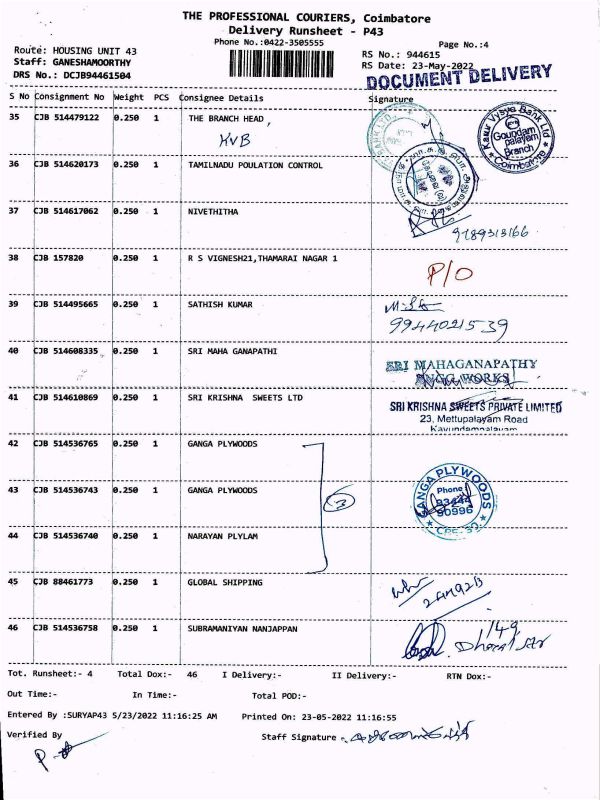 THE PROFESSIONAL COURIERS, Coimbatore
Delivery Runsheet - P43
Phone No.:0422-3505555
Page No.:4
Route: HOUSING UNIT 43
RS No.: 944615
Staff: GANESHAMOORTHY
RS Date: 23-May-2022
DRS No.: DCJB94461504
DOCUMENT DELIVERY
S No Consignment No Weight PCS Consignee Details Signature
35 CJB 514479122 0.250 1 THE BRANCH HEAD,
KVB
Karur Vysya Bank Ltd
Goundam
palayam
Branch
Coimbatore
36 CJB 514620173 0.250 1 TAMILNADU POULATION CONTROL
37 CJB 514617062 0.250 1 NIVETHITHA
9789313166
38 CJB 157820 0.250 1 R S VIGNESH21,THAMARAI NAGAR 1
P/O
39 CJB 514495665 0.250 1 SATHISH KUMAR
9944021539
40 CJB 514608335 0.250 1 SRI MAHA GANAPATHI
SRI MAHAGANAPATHY
ENGG WORKS
41 CJB 514610869 0.250 1 SRI KRISHNA SWEETS LTD
SRI KRISHNA SWEETS PRIVATE LIMITED
23, Mettupalayam Road
Kavundampalayam
42 CJB 514536765 0.250 1 GANGA PLYWOODS
43 CJB 514536743 0.250 1 GANGA PLYWOODS
3
GANGA PLYWOODS
Phone
93444
90996
CBE-30
44 CJB 514536740 0.250 1 NARAYAN PLYLAM
45 CJB 88461773 0.250 1 GLOBAL SHIPPING
46 CJB 514536758 0.250 1 SUBRAMANIYAN NANJAPPAN
149
Tot. Runsheet:- 4 Total Dox:- 46 I Delivery:- II Delivery:- RTN Dox:-
Out Time:- In Time:- Total POD:-
Entered By :SURYAP43 5/23/2022 11:16:25 AM Printed On: 23-05-2022 11:16:55
Verified By
Staff Signature